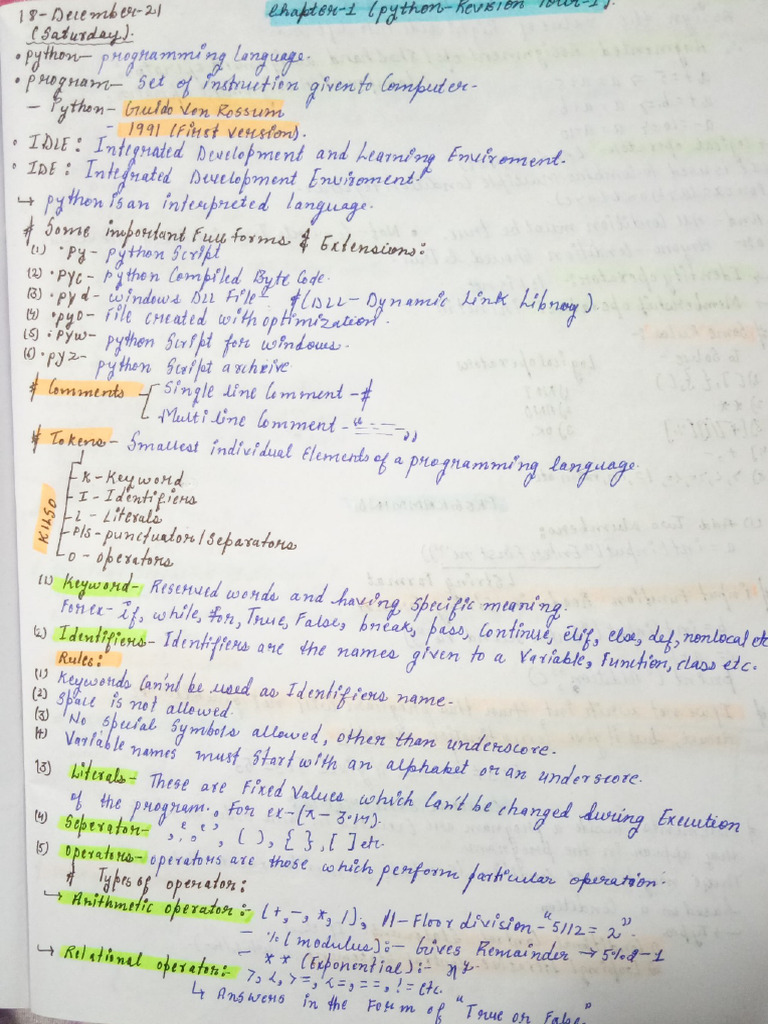 18-December-21
Chapter-1 (python-Revision Tour-1).
(Saturday).
• python- programming language.
• program- set of instruction given to Computer-
- Python- Guido Von Rossum
- 1991 (First version).
• IDLE: Integrated Development and Learning Enviroment.
• IDE: Integrated Development Enviroment.
↳ python is an interpreted language.
# Some important Full Forms & Extensions:
(1) .py- python Script
(2) .pyc- python Compiled Byte Code.
(3) .pyd- windows Dll File- #(DLL- Dynamic Link Library)
(4) .pyo- File created with optimization.
(5) .pyw- python Script for windows.
(6) .pyz- python Script archive
# Comments - Single line Comment - #
Multiline Comment - "====="
# Tokens- Smallest individual Elements of a programming language.
KILSO
K- Keyword
I- Identifiers
L- Literals
P/S- punctuator/Separators
O- operators
(1) Keyword- Reserved words and having specific meaning.
For ex- if, while, for, True, False, break, pass, Continue, elif, else, def, nonlocal etc
(2) Identifiers- Identifiers are the names given to a Variable, Function, class etc.
Rules:
(1) Keywords Can'nt be used as Identifiers name.
(2) Space is not allowed.
(3) No special Symbols allowed, other than underscore.
(4) Variable names must Start with an alphabet or an underscore.
(3) Literals- These are Fixed Values which Can't be changed during Execution
of the program. For ex-(π- 3.14).
(4) Seperator- , ( ), { }, [ ] etc.
(5) operators- operators are those which perform particular operation.
# Types of operator:
↳ Arithmetic operator:- (+,-,*,/), //- Floor division- "5//2 = 2".
- %(modulus):- Gives Remainder → 5%2-1
- ** (Exponential):- x^y
↳ Relational operator:- >, <, >=, <=, ==, != etc.
↳ Answers in the Form of "True or False"